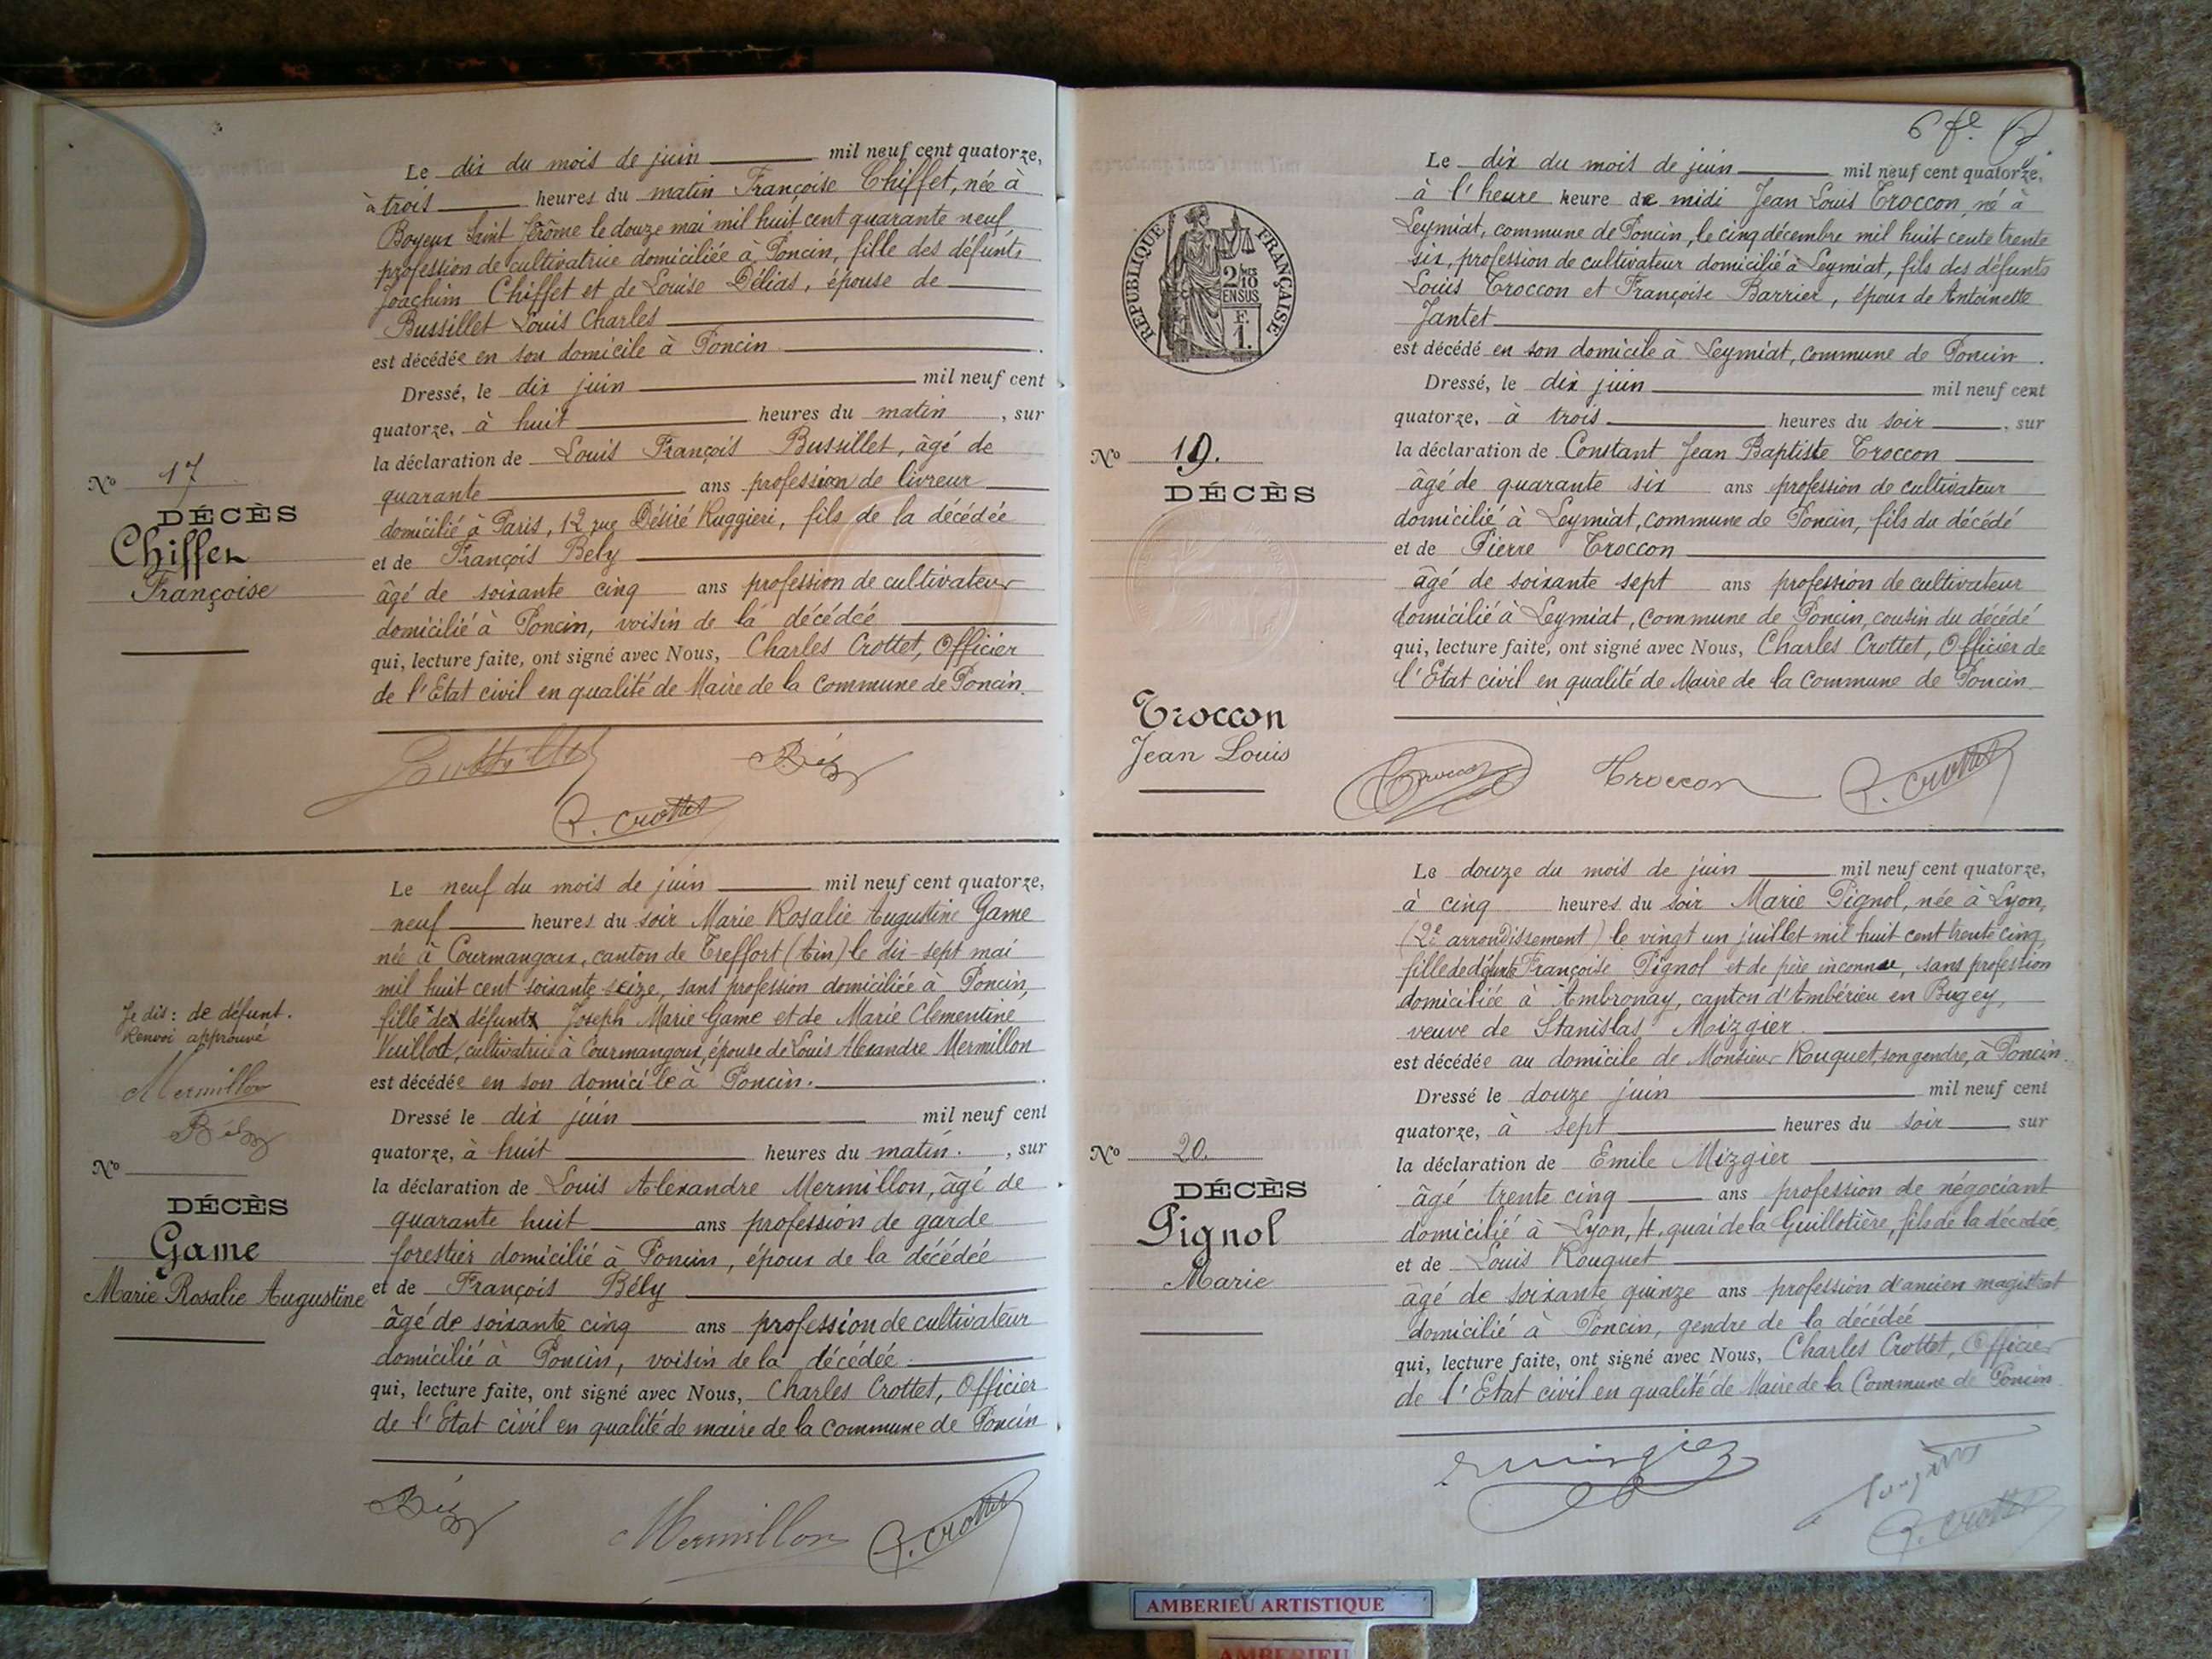 Le dix du mois de juin mil neuf cent quatorze,
à trois heures du matin Françoise Chiffet, née à
Boyeux Saint Jérôme le douze mai mil huit cent quarante neuf
profession de cultivatrice domiciliée à Poncin, fille des défunts
Joachim Chiffet et de Louise Délias, épouse de
Bussillet Louis Charles
est décédée en son domicile à Poncin
Dressé, le dix juin mil neuf cent
quatorze, à huit heures du matin, sur
la déclaration de Louis François Bussillet, âgé de
quarante ans profession de livreur
domicilié à Paris, 12 rue Désiré Ruggieri, fils de la décédée
et de François Bely
âgé de soixante cinq ans profession de cultivateur
domicilié à Poncin, voisin de la décédée
qui, lecture faite, ont signé avec Nous, Charles Crottet, Officier
de l'Etat civil en qualité de Maire de la Commune de Poncin.
No 17
DÉCÈS
Chiffet
Françoise
C. Crottet
Le neuf du mois de juin mil neuf cent quatorze,
neuf heures du soir Marie Rosalie Augustine Game
née à Courmangoux, canton de Treffort (Ain) le dix-sept mai
mil huit cent soixante seize, sans profession domiciliée à Poncin,
fille des défunts Joseph Marie Game et de Marie Clementine
Vuillod, cultivatrice à Courmangoux, épouse de Louis Alexandre Mermillon
est décédée en son domicile à Poncin.
Dressé le dix juin mil neuf cent
quatorze, à huit heures du matin, sur
la déclaration de Louis Alexandre Mermillon, âgé de
quarante huit ans profession de garde
forestier domicilié à Poncin, époux de la décédée
et de François Bély
âgé de soixante cinq ans profession de cultivateur
domicilié à Poncin, voisin de la décédée
qui, lecture faite, ont signé avec Nous, Charles Crottet, Officier
de l'Etat civil en qualité de maire de la commune de Poncin
Je dis: de défunt.
Renvoi approuvé
Mermillon
Bély
No
DÉCÈS
Game
Marie Rosalie Augustine
Bély Mermillon C. Crottet
6 fe.
Le dix du mois de juin mil neuf cent quatorze,
à l'heure heure de midi Jean Louis Troccon, né à
Leymiat, commune de Poncin, le cinq décembre mil huit cent trente
six, profession de cultivateur domicilié à Leymiat, fils des défunts
Louis Troccon et Françoise Barrier, époux de Antoinette
Jantet
est décédé en son domicile à Leymiat, commune de Poncin.
Dressé, le dix juin mil neuf cent
quatorze, à trois heures du soir, sur
la déclaration de Constant Jean Baptiste Troccon
âgé de quarante six ans profession de cultivateur
domicilié à Leymiat, commune de Poncin, fils du décédé
et de Pierre Troccon
âgé de soixante sept ans profession de cultivateur
domicilié à Leymiat, commune de Poncin, cousin du décédé
qui, lecture faite, ont signé avec Nous, Charles Crottet, Officier de
l'Etat civil en qualité de Maire de la Commune de Poncin
RÉPUBLIQUE FRANÇAISE
2/10
EN SUS
F.
1.
No 19.
DÉCÈS
Troccon
Jean Louis
Troccon Troccon C. Crottet
Le douze du mois de juin mil neuf cent quatorze,
à cinq heures du soir Marie Pignol, née à Lyon,
(2e arrondissement) le vingt un juillet mil huit cent trente cinq,
fille de défunte Françoise Pignol et de père inconnu, sans profession
domiciliée à Ambronay, canton d'Ambérieu en Bugey,
veuve de Stanislas Mizgier.
est décédée au domicile de Monsieur Rouquet, son gendre, à Poncin.
Dressé le douze juin mil neuf cent
quatorze, à sept heures du soir sur
la déclaration de Emile Mizgier
âgé trente cinq ans profession de négociant
domicilié à Lyon, 4, quai de la Guillotière, fils de la décédée
et de Louis Rouquet
âgé de soixante quinze ans profession d'ancien magistrat
domicilié à Poncin, gendre de la décédée
qui, lecture faite, ont signé avec Nous, Charles Crottet, Officier
de l'Etat civil en qualité de Maire de la Commune de Poncin.
No 20.
DÉCÈS
Pignol
Marie
C. Crottet
AMBERIEU ARTISTIQUE
AMBERIEU